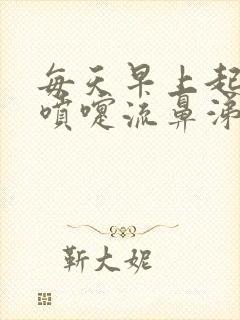 每天早上起
喷嚏流鼻涕
靳大妮